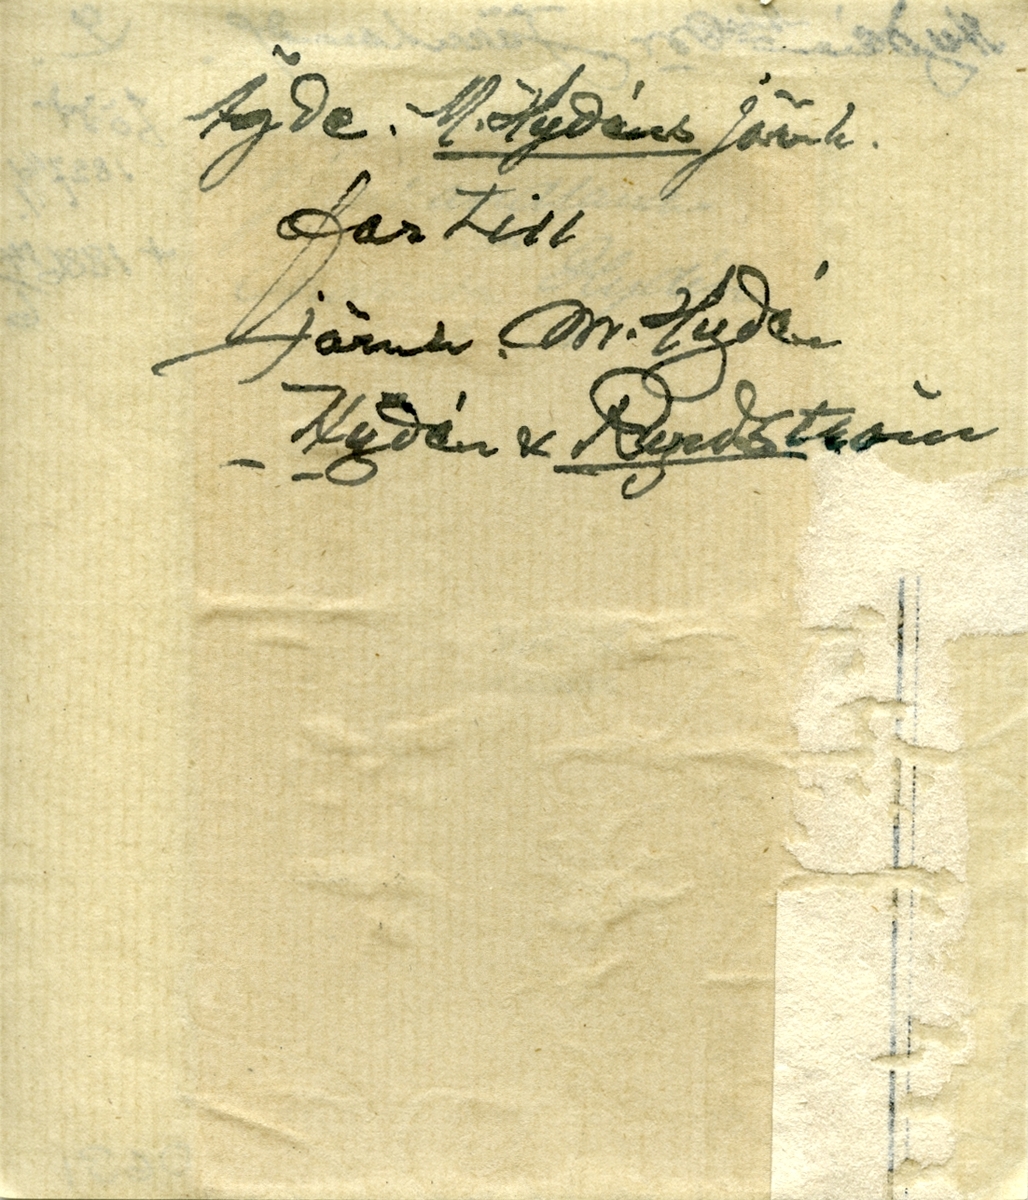 Ägde. M. Hydéns järnh.
far till
järnh. M. Hydén
Hydén & Rydström